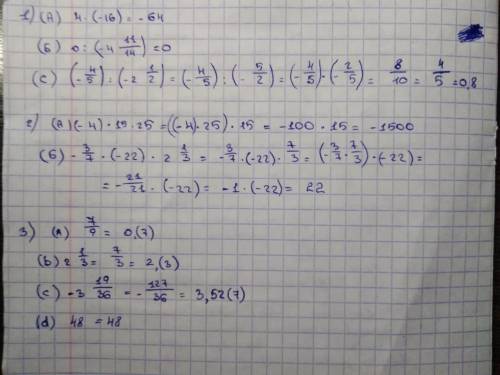 1) (А) 4·(-16) = -64
(Б) 0 : (-4 11/14) = 0
(С) (-4/5) : (-2 1/2) = (-4/5) : (-5/2) = (-4/5)·(-2/5) = 8/10 = 4/5 = 0,8
2) (А) (-4)·15·25 = ((-4)·25)·15 = -100·15 = -1500
(Б) -3/7·(-22)·2 1/3 = -3/7·(-22)·7/3 = (-3/7·7/3)·(-22) =
= -21/21·(-22) = -1·(-22) = 22
3) (a) 7/9 = 0,(7)
(b) 2 1/3 = 7/3 = 2,(3)
(c) -3 19/36 = -127/36 = 3,52(7)
(d) 48 = 48